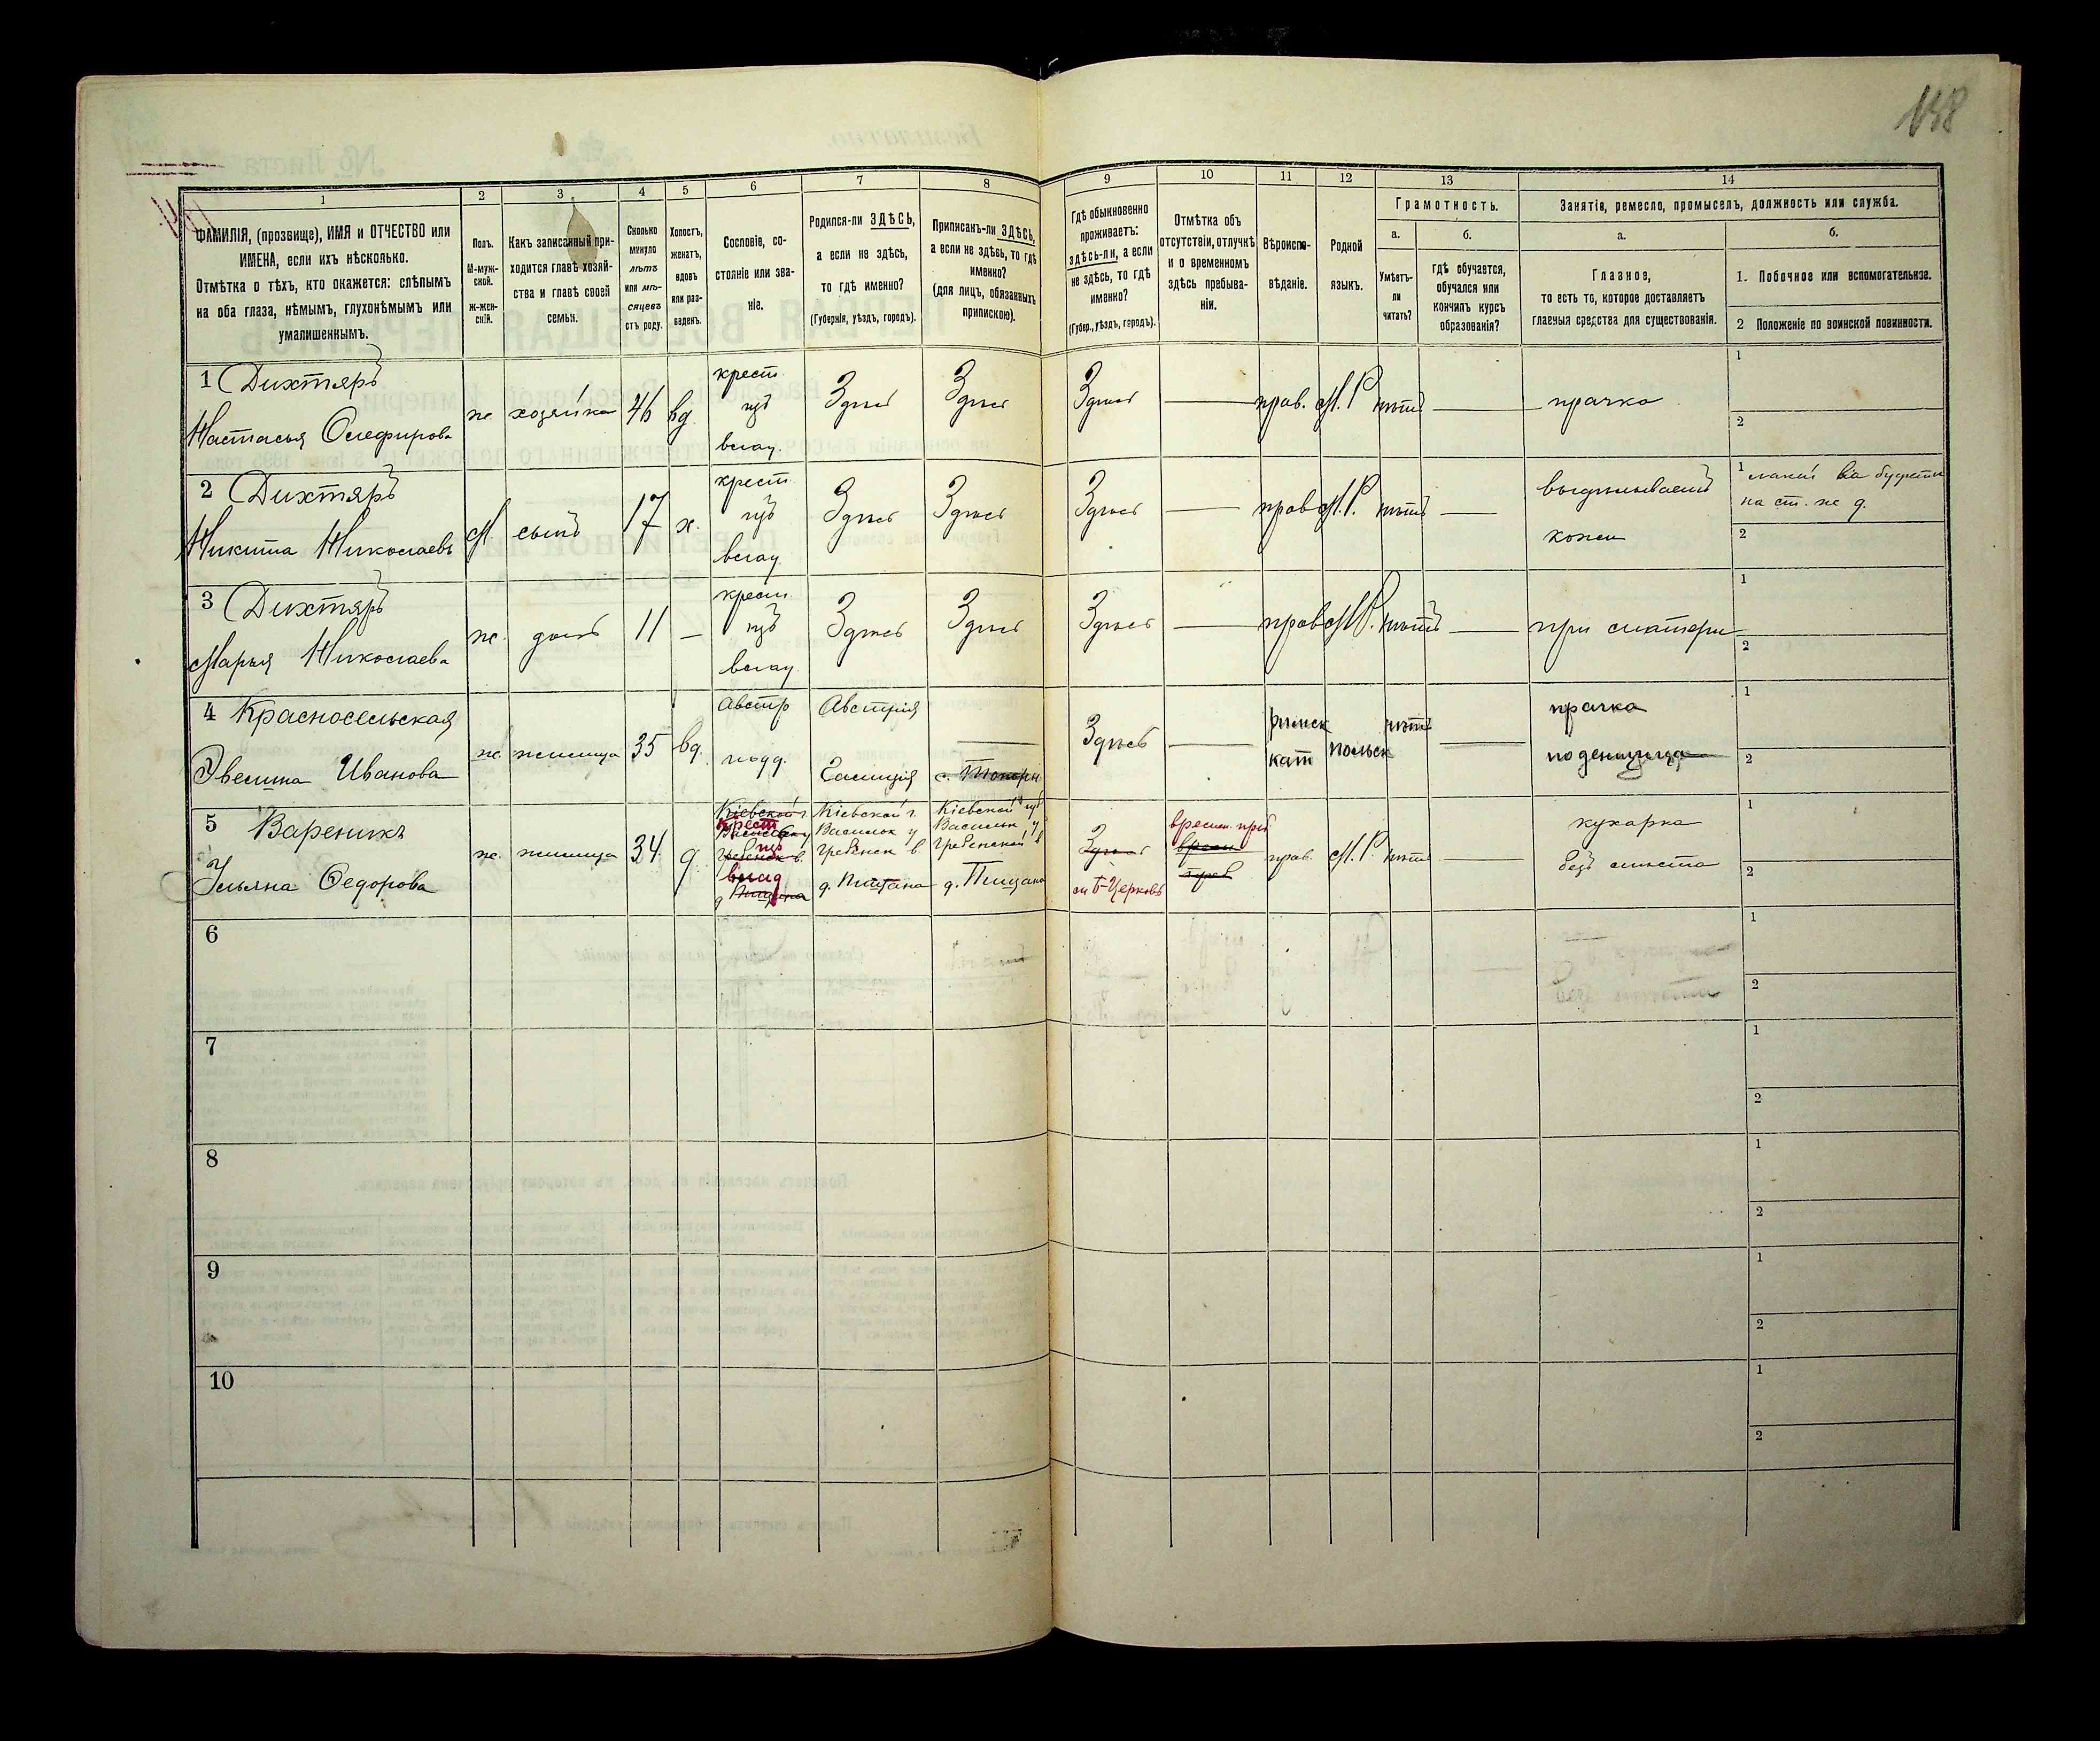 158
1 2 3 4 5 6 7 8 9 10 11 12 13 14
ФАМИЛІЯ, (прозвище), ИМЯ и ОТЧЕСТВО или
ИМЕНА, если ихъ нѣсколько.
Отмѣтка о тѣхъ, кто окажется: слѣпымъ
на оба глаза, нѣмымъ, глухонѣмымъ или
умалишеннымъ.
Полъ.
М-муж-
ской.
Ж-жен-
скій.
Какъ записанный при-
ходится главѣ хозяй-
ства и главѣ своей
семьи.
Сколько
минуло
лѣтъ
или мѣ-
сяцевъ
отъ роду.
Холостъ,
женатъ,
вдовъ
или раз-
веденъ.
Сословіе, со-
стояніе или зва-
ніе.
Родился-ли ЗДѢСЬ,
а если не здѣсь,
то гдѣ именно?
(Губернія, уѣздъ, городъ).
Приписанъ-ли ЗДѢСЬ,
а если не здѣсь, то гдѣ
именно?
(для лицъ, обязанныхъ
припискою).
Гдѣ обыкновенно
проживаетъ:
здѣсь-ли, а если
не здѣсь, то гдѣ
именно?
(Губер., уѣздъ, городъ).
Отмѣтка объ
отсутствіи, отлучкѣ
и о временномъ
здѣсь пребыва-
ніи.
Вѣроиспо-
вѣданіе.
Родной
языкъ.
Грамотность.
а.
Умѣетъ-
ли
читать?
б.
Гдѣ обучается,
обучался или
кончилъ курсъ
образованія?
Занятія, ремесло, промыселъ, должность или служба.
а.
Главное,
то есть то, которое доставляетъ
главныя средства для существованія.
б.
1. Побочное или вспомогательное.
2 Положеніе по воинской повинности.
1 Дихтяръ
Настасья Олефирова
ж. хозяйка 46 вд.
крест.
изъ
влад.
Здѣсь Здѣсь Здѣсь — прав. М.Р. нѣтъ — прачка
1
2
2 Дихтяръ
Никита Николаевъ
М. сынъ 17 х.
крест.
изъ
влад.
Здѣсь Здѣсь Здѣсь — прав М.Р. нѣтъ —
выдѣлываетъ
кожи
1
на ст. ж д.
2
3 Дихтяръ
Марья Николаева
ж. дочь 11 —
крест.
изъ
влад.
Здѣсь Здѣсь Здѣсь — прав М.Р. нѣтъ — при матери
1
2
4 Красносельская
Эвелина Иванова
ж. жилица 35 вд.
Австр
подд.
Австрія
Галиція
—
Здѣсь —
римск
кат
польск
нѣтъ —
прачка
поденщица
1
2
5 Вареникъ
Ульяна Федорова
ж. жилица 34 д.
Кіевской г
крест
изъ
влад
д Пищана
Кіевской г.
Васильк у
Гребенск в
д. Пищана
Кіевской губ
Васильк у
Гребенской в
д. Пищана
Здѣсь
м Б-Церковь
времен. преб
времен
преб
прав. М.Р. нѣтъ —
кухарка
безъ мѣста
1
2
6
1
2
7
1
2
8
1
2
9
1
2
10
1
2